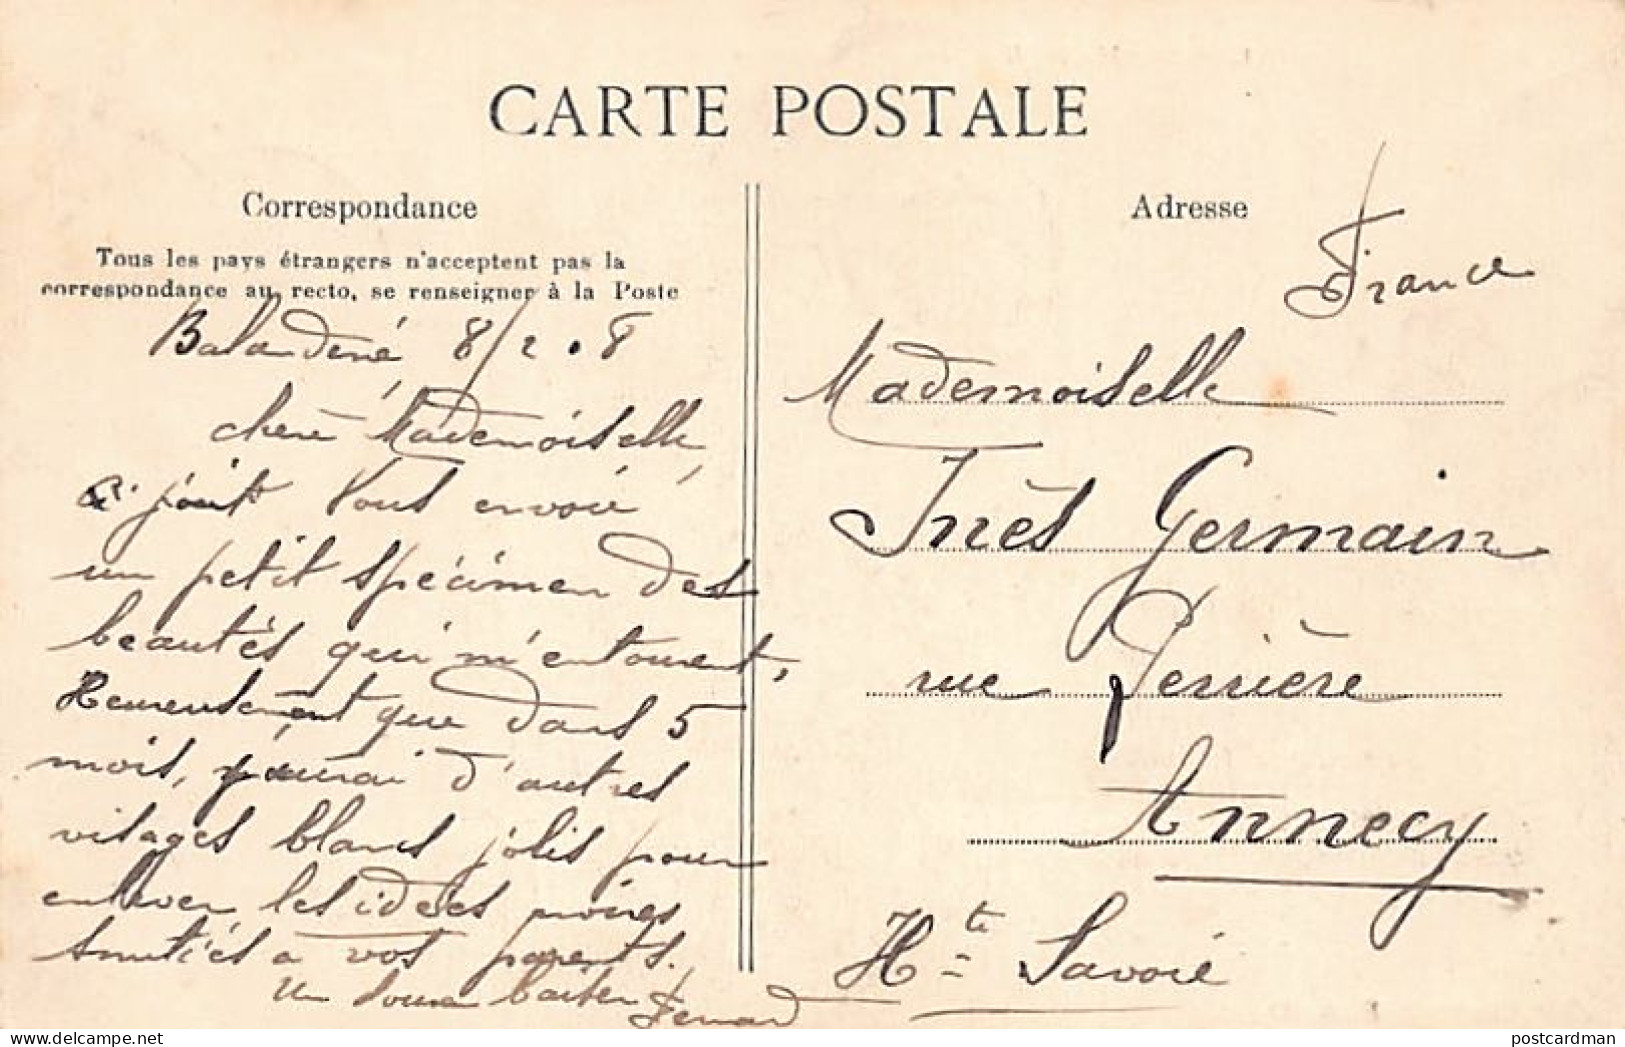 CARTE POSTALE
Correspondance
Tous les pays étrangers n'acceptent pas la
correspondance au recto, se renseigner à la Poste
8/2 . 8
chère Mademoiselle,
joint vous envoie
un petit spécimen des
beautés qui m'entourent,
Heureusement que dans 5
mois, j'aurai d'autres
visages blancs jolis pour
enlever les idées noires
amitiés a vos parents.
Un doux baiser
Adresse
France
Mademoiselle
Inès Germain
rue Perrière
Annecy
Hte Savoie
postcardman